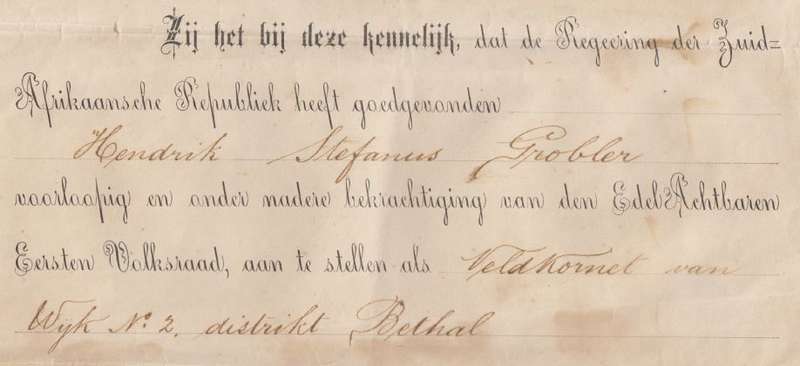 Zij het bij deze kennelijk, dat de Regeering der Zuid=
Afrikaansche Republiek heeft goedgevonden
Hendrik Stefanus Grobler
voorloopig en onder nadere bekrachtiging van den Edel Achtbaren
Eersten Volksraad, aan te stellen als Veldkornet van
Wyk No. 2. distrikt Bethal